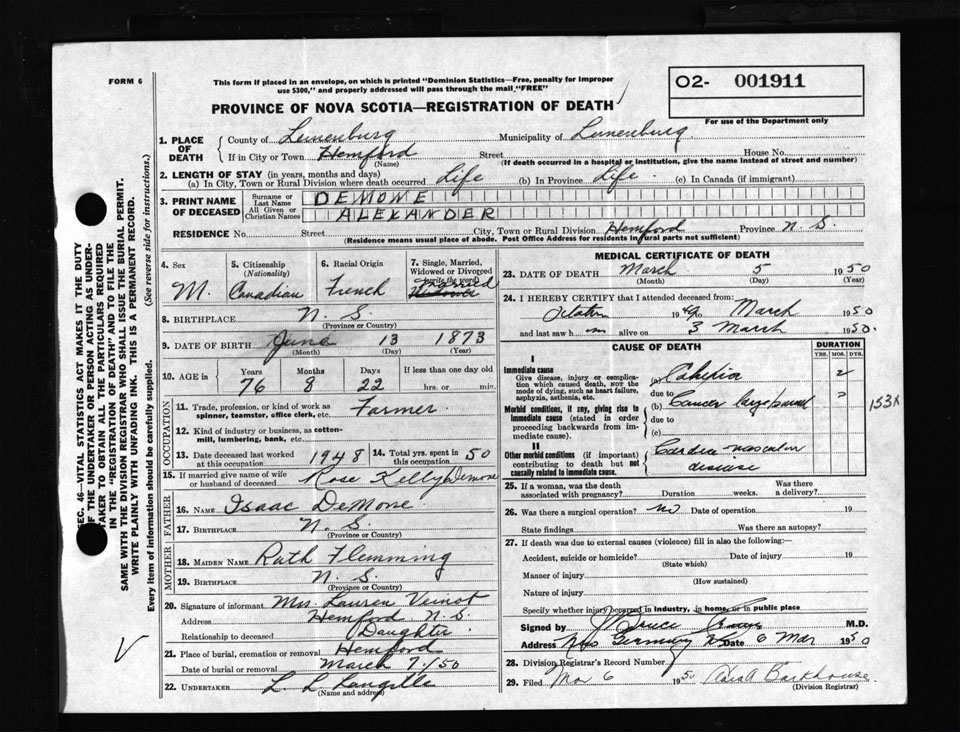 FORM 6
This form if placed in an envelope, on which is printed "Dominion Statistics—Free, penalty for improper
use $300," and properly addressed will pass through the mail "FREE"
O2- 001911
For use of the Department only
PROVINCE OF NOVA SCOTIA—REGISTRATION OF DEATH
1. PLACE OF DEATH
County of Lunenburg Municipality of Lunenburg
If in City or Town Hemford Street House No.
(Name) (If death occurred in a hospital or institution, give the name instead of street and number)
2. LENGTH OF STAY (in years, months and days)
(a) In City, Town or Rural Division where death occurred Life (b) In Province Life (c) In Canada (if immigrant)
3. PRINT NAME OF DECEASED
Surname or Last Name DEMONE
All Given or Christian Names ALEXANDER
RESIDENCE No. Street City, Town or Rural Division Hemford Province N. S.
(Residence means usual place of abode. Post Office Address for residents in rural parts not sufficient)
4. Sex M.
5. Citizenship (Nationality) Canadian
6. Racial Origin French
7. Single, Married, Widowed or Divorced (write the word) Married Widower
8. BIRTHPLACE N. S.
(Province or Country)
9. DATE OF BIRTH June 13 1873
(Month) (Day) (Year)
10. AGE in Years Months Days If less than one day old
76 8 22 hrs. or min.
OCCUPATION
11. Trade, profession, or kind of work as spinner, teamster, office clerk, etc. Farmer
12. Kind of industry or business, as cotton-mill, lumbering, bank, etc.
13. Date deceased last worked at this occupation 1948
14. Total yrs. spent in this occupation 50
15. If married give name of wife or husband of deceased Rose Kelly Demone
FATHER
16. NAME Isaac DeMone
17. BIRTHPLACE N. S.
(Province or Country)
MOTHER
18. MAIDEN NAME Ruth Flemming
19. BIRTHPLACE N. S.
(Province or Country)
20. Signature of informant Mrs. Lauren Veinot
Address Hemford N. S.
Relationship to deceased Daughter
21. Place of burial, cremation or removal Hemford
Date of burial or removal March 7/50
22. UNDERTAKER L. L. Langille
(Name and address)
MEDICAL CERTIFICATE OF DEATH
23. DATE OF DEATH March 5 1950
(Month) (Day) (Year)
24. I HEREBY CERTIFY that I attended deceased from:
1949 to March 1950
and last saw h m alive on 3 March 1950.
CAUSE OF DEATH
DURATION
YRS. MOS. DYS.
I
Immediate cause
Give disease, injury or complication which caused death, not the mode of dying, such as heart failure, asphyxia, asthenia, etc.
(a) 2
due to
Morbid conditions, if any, giving rise to immediate cause (stated in order proceeding backwards from immediate cause).
(b) Cancer large bowel
153x
due to
(c)
II
Other morbid conditions (if important) contributing to death but not causally related to immediate cause.
Cardio vascular
disease
25. If a woman, was the death associated with pregnancy? Duration weeks. Was there a delivery?
26. Was there a surgical operation? no Date of operation 19
State findings Was there an autopsy?
27. If death was due to external causes (violence) fill in also the following:—
Accident, suicide or homicide? Date of injury 19
(State which)
Manner of injury
(How sustained)
Nature of injury
Specify whether injury occurred in industry, in home, or in public place
Signed by Bruce M.D.
Address New Germany N.S. Date 6 Mar 1950
28. Division Registrar's Record Number
29. Filed Mar 6 1950 Barkhouse
(Division Registrar)
SEC. 46—VITAL STATISTICS ACT MAKES IT THE DUTY
OF THE UNDERTAKER OR PERSON ACTING AS UNDER-
TAKER TO OBTAIN ALL THE PARTICULARS REQUIRED
IN THE "REGISTRATION OF DEATH" AND TO FILE THE
SAME WITH THE DIVISION REGISTRAR WHO SHALL ISSUE THE BURIAL PERMIT.
WRITE PLAINLY WITH UNFADING INK. THIS IS A PERMANENT RECORD.
Every item of information should be carefully supplied. (See reverse side for instructions.)